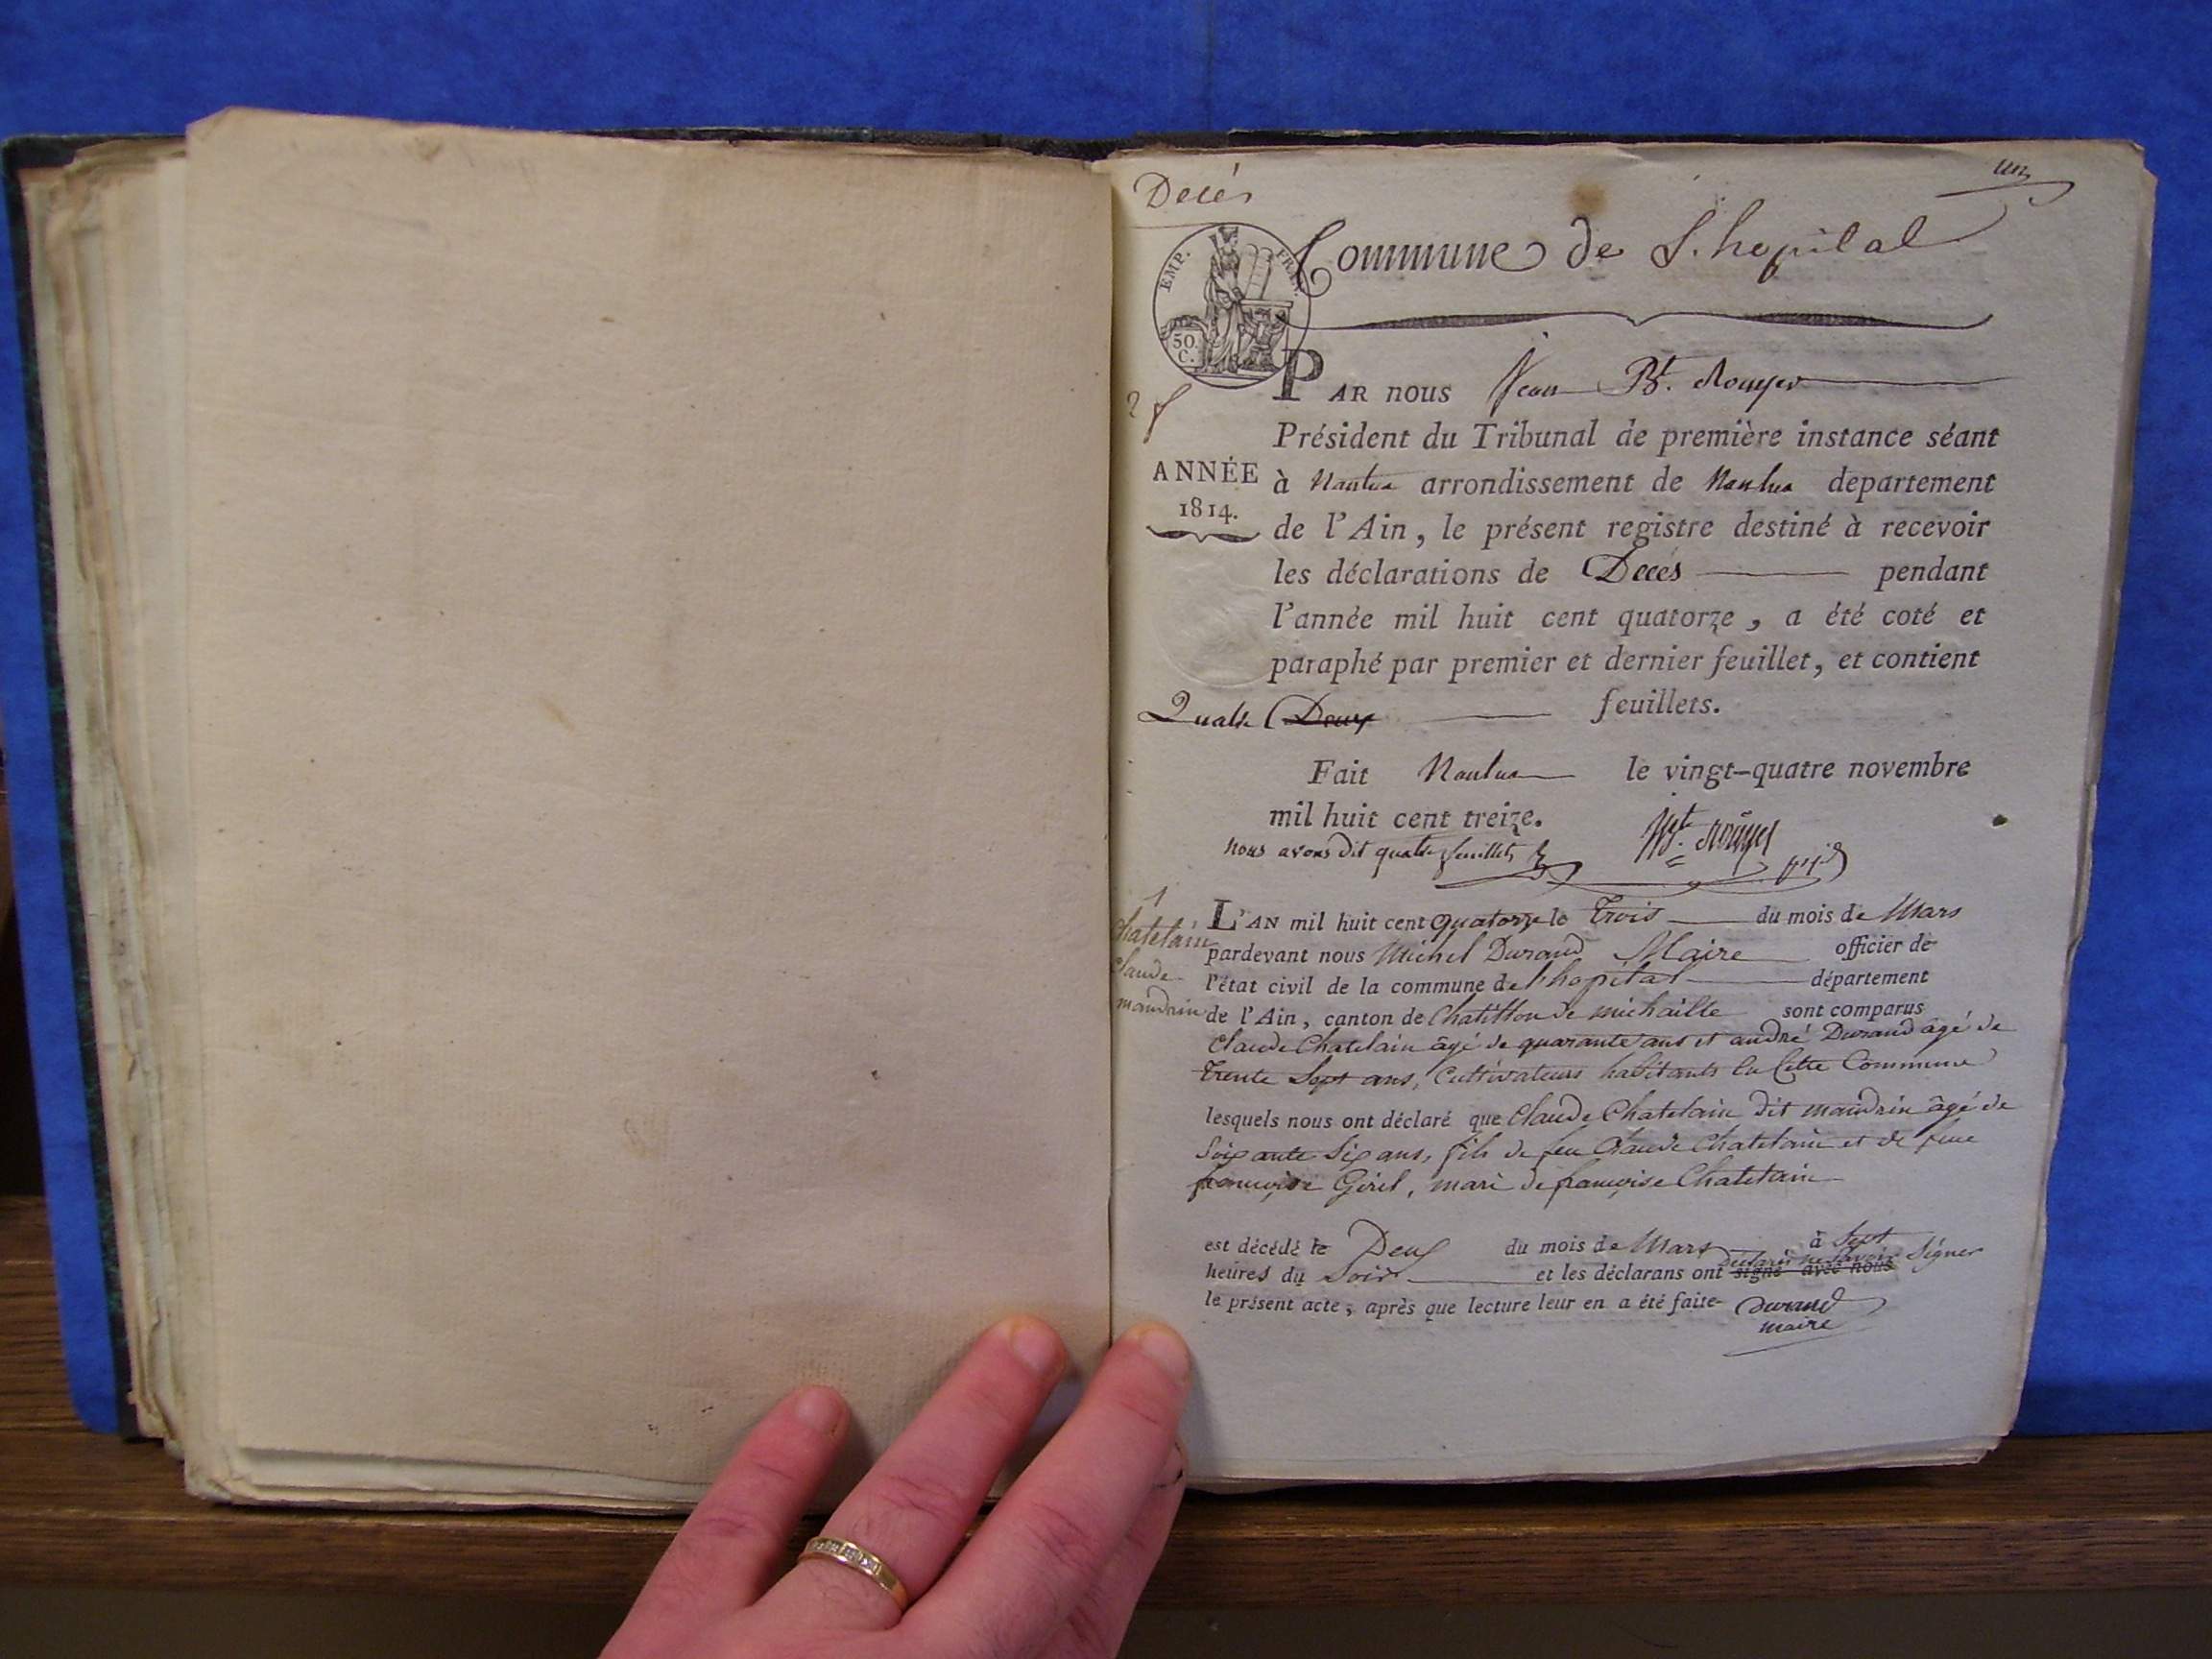 Decés
un
Commune de L'hopital
EMP. FRAN.
50.
C.
PAR nous Jean Bt. Rouyer
Président du Tribunal de première instance séant
ANNÉE
1814.
à Nantua arrondissement de Nantua departement
de l'Ain, le présent registre destiné à recevoir
les déclarations de Decés pendant
l'année mil huit cent quatorze, a été coté et
paraphé par premier et dernier feuillet, et contient
Quatre Deux feuillets.
Fait Nantua le vingt-quatre novembre
mil huit cent treize.
nous avons dit quatre feuillets
Bte. Rouyer
1
Chatelain
Claude
mandrin
L'AN mil huit cent quatorze le Trois du mois de Mars
pardevant nous Michel Durand Maire officier de
l'état civil de la commune de l'hopital département
de l'Ain, canton de Chatillon de michaille sont comparus
Claude Chatelain âgé de quarante ans et andré Durand âgé de
Trente Sept ans, Cultivateurs habitants la Cette Commune
lesquels nous ont déclaré que Claude Chatelain dit mandrin âgé de
Soixante Six ans, fils de feu Claude Chatelain et de feue
françoise Girel, mari de françoise Chatelain
est décédé le Deux du mois de Mars à Sept
heures du Soir et les déclarans ont signé avec nous déclarés ne Savoir Signer
le présent acte, après que lecture leur en a été faite. Durand
maire